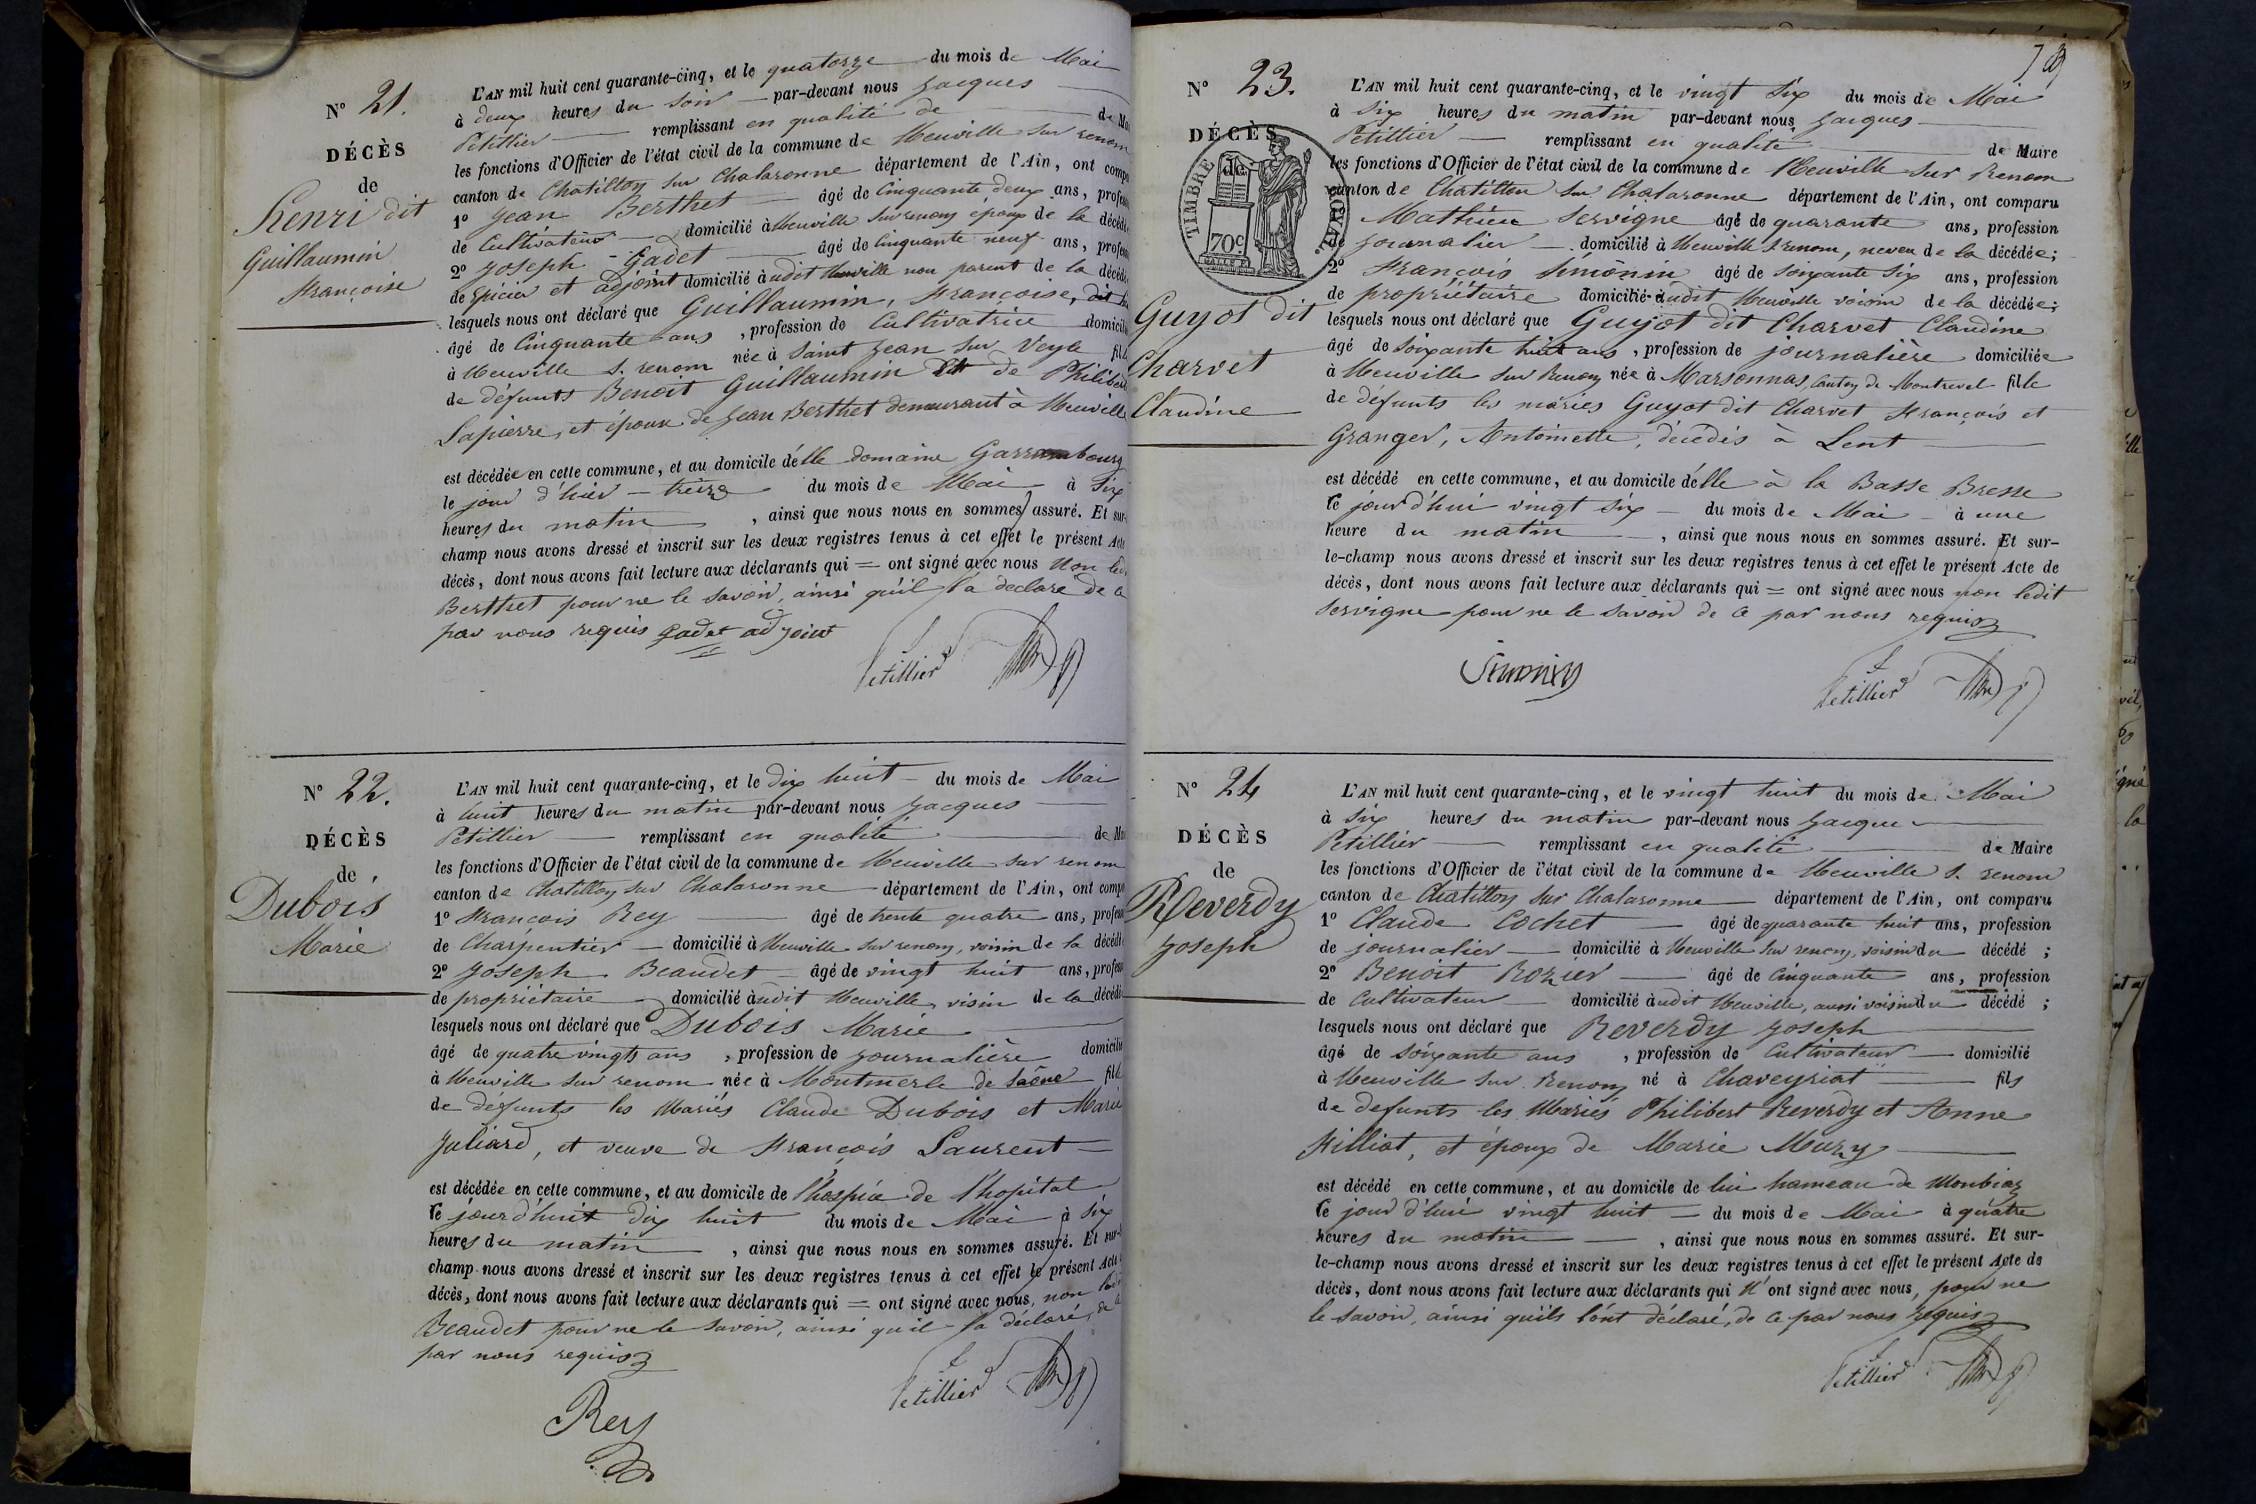 N° 21.
DÉCÈS
de
Henri dit
Guillaumin
Françoise
L'AN mil huit cent quarante-cinq, et le quatorze du mois de Mai
à deux heures du soir par-devant nous Jacques
Petillier remplissant en qualité de de
les fonctions d'Officier de l'état civil de la commune de Neuville sur renom
canton de Chatillon sur Chalaronne département de l'Ain, ont
1° Jean Berthet âgé de Cinquante deux ans,
de Cultivateur domicilié à Neuville sur renom époux de la
2° Joseph Gadet âgé de Cinquante neuf ans,
de Epicier et adjoint domicilié àudit Neuville non parent de la
lesquels nous ont déclaré que Guillaumin, Françoise, dit
âgé de Cinquante ans, profession de Cultivatrice
à Neuville s. renom née à Saint Jean sur Veyle
de défunts Benoit Guillaumin Et de Philiberte
Lapierre, et épouse de Jean Berthet demeurant à Neuville
est décédée en cette commune, et au domicile d'elle domaine
le jour d'hier treize du mois de Mai à Six
heures du matin, ainsi que nous nous en sommes assuré. Et sur-
champ nous avons dressé et inscrit sur les deux registres tenus à cet effet le présent Acte
décès, dont nous avons fait lecture aux déclarants qui = ont signé avec nous Non
Berthet pour ne le savoir, ainsi qu'il l'a déclaré de ce
par nous requis Gadet adjoint
Petillier
N° 22.
DÉCÈS
de
Dubois
Marie
L'AN mil huit cent quarante-cinq, et le dix huit du mois de Mai
à huit heures du matin par-devant nous Jacques
Petillier remplissant en qualité de
les fonctions d'Officier de l'état civil de la commune de Neuville sur renom
canton de Chatillon sur Chalaronne département de l'Ain, ont
1° François Rey âgé de trente quatre ans,
de Charpentier domicilié à Neuville sur renom, voisin de la
2° Joseph Beaudet âgé de vingt huit ans,
de propriétaire domicilié àudit Neuville, visin de la
lesquels nous ont déclaré que Dubois Marie
âgé de quatre vingts ans, profession de journalière
à Neuville sur renom née à Montmerle de Saône
de défunts les Mariés Claude Dubois et Marie
Juliard, et veuve de François Laurent
est décédée en cette commune, et au domicile de l'hospice de l'hopital
le jourd'huit dix huit du mois de Mai à Six
heures du matin, ainsi que nous nous en sommes assuré. Et sur-
champ nous avons dressé et inscrit sur les deux registres tenus à cet effet le présent Acte
décès, dont nous avons fait lecture aux déclarants qui = ont signé avec nous, non
Beaudet pour ne le savoir, ainsi qu'il l'a déclaré, de ce
par nous requis
Petillier
Rey
N° 23.
DÉCÈS
de
TIMBRE ROYAL
70c
Guyot dit
Charvet
Claudine
L'AN mil huit cent quarante-cinq, et le vingt Six du mois de Mai
à Six heures du matin par-devant nous Jacques
Petillier remplissant en qualité de Maire
les fonctions d'Officier de l'état civil de la commune de Neuville sur Renom
canton de Chatillon sur Chalaronne département de l'Ain, ont comparu
Mathieu Servigne âgé de quarante ans, profession
de journalier domicilié à Neuville s renom, neveu de la décédée;
2° François Simonin âgé de soixante Six ans, profession
de propriétaire domicilié àudit Neuville voisin de la décédée;
lesquels nous ont déclaré que Guyot dit Charvet Claudine
âgé de soixante huit ans, profession de journalière domiciliée
à Neuville sur Renom née à Marsonnas, Canton de Montrevel fille
de défunts les mariés Guyot dit Charvet François et
Granger, Antoinette, décédés à Lent
est décédé en cette commune, et au domicile d'elle à la Basse Bresse
le jourd'hui vingt Six du mois de Mai à une
heure du matin, ainsi que nous nous en sommes assuré. Et sur-
le-champ nous avons dressé et inscrit sur les deux registres tenus à cet effet le présent Acte de
décès, dont nous avons fait lecture aux déclarants qui = ont signé avec nous non ledit
Servigne pour ne le savoir de ce par nous requis
Simonin
Petillier
N° 24
DÉCÈS
de
Reverdy
Joseph
L'AN mil huit cent quarante-cinq, et le vingt huit du mois de Mai
à Six heures du matin par-devant nous Jacque
Petillier remplissant en qualité de Maire
les fonctions d'Officier de l'état civil de la commune de Neuville s. renom
canton de Chatillon sur Chalaronne département de l'Ain, ont comparu
1° Claude Cochet âgé de quarante huit ans, profession
de journalier domicilié à Neuville sur renom, voisin du décédé;
2° Benoit Rozier âgé de Cinquante ans, profession
de Cultivateur domicilié àudit Neuville, aussi voisin du décédé;
lesquels nous ont déclaré que Reverdy Joseph
âgé de soixante ans, profession de Cultivateur domicilié
à Neuville sur Renom né à Chaveyriat fils
de defunts les Mariés Philibert Reverdy et Anne
Filliat, et époux de Marie Mury
est décédé en cette commune, et au domicile de lui hameau de Monbiaz
le jour d'hui vingt huit du mois de Mai à quatre
heures du matin, ainsi que nous nous en sommes assuré. Et sur-
le-champ nous avons dressé et inscrit sur les deux registres tenus à cet effet le présent Acte de
décès, dont nous avons fait lecture aux déclarants qui n'ont signé avec nous, pour ne
le savoir, ainsi qu'ils l'ont déclaré, de ce par nous requis
Petillier